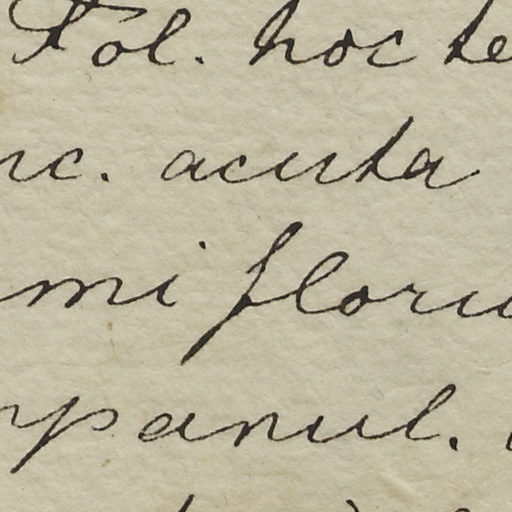 Fol. hoc te
nc. acuta
mi floru
mpanul.